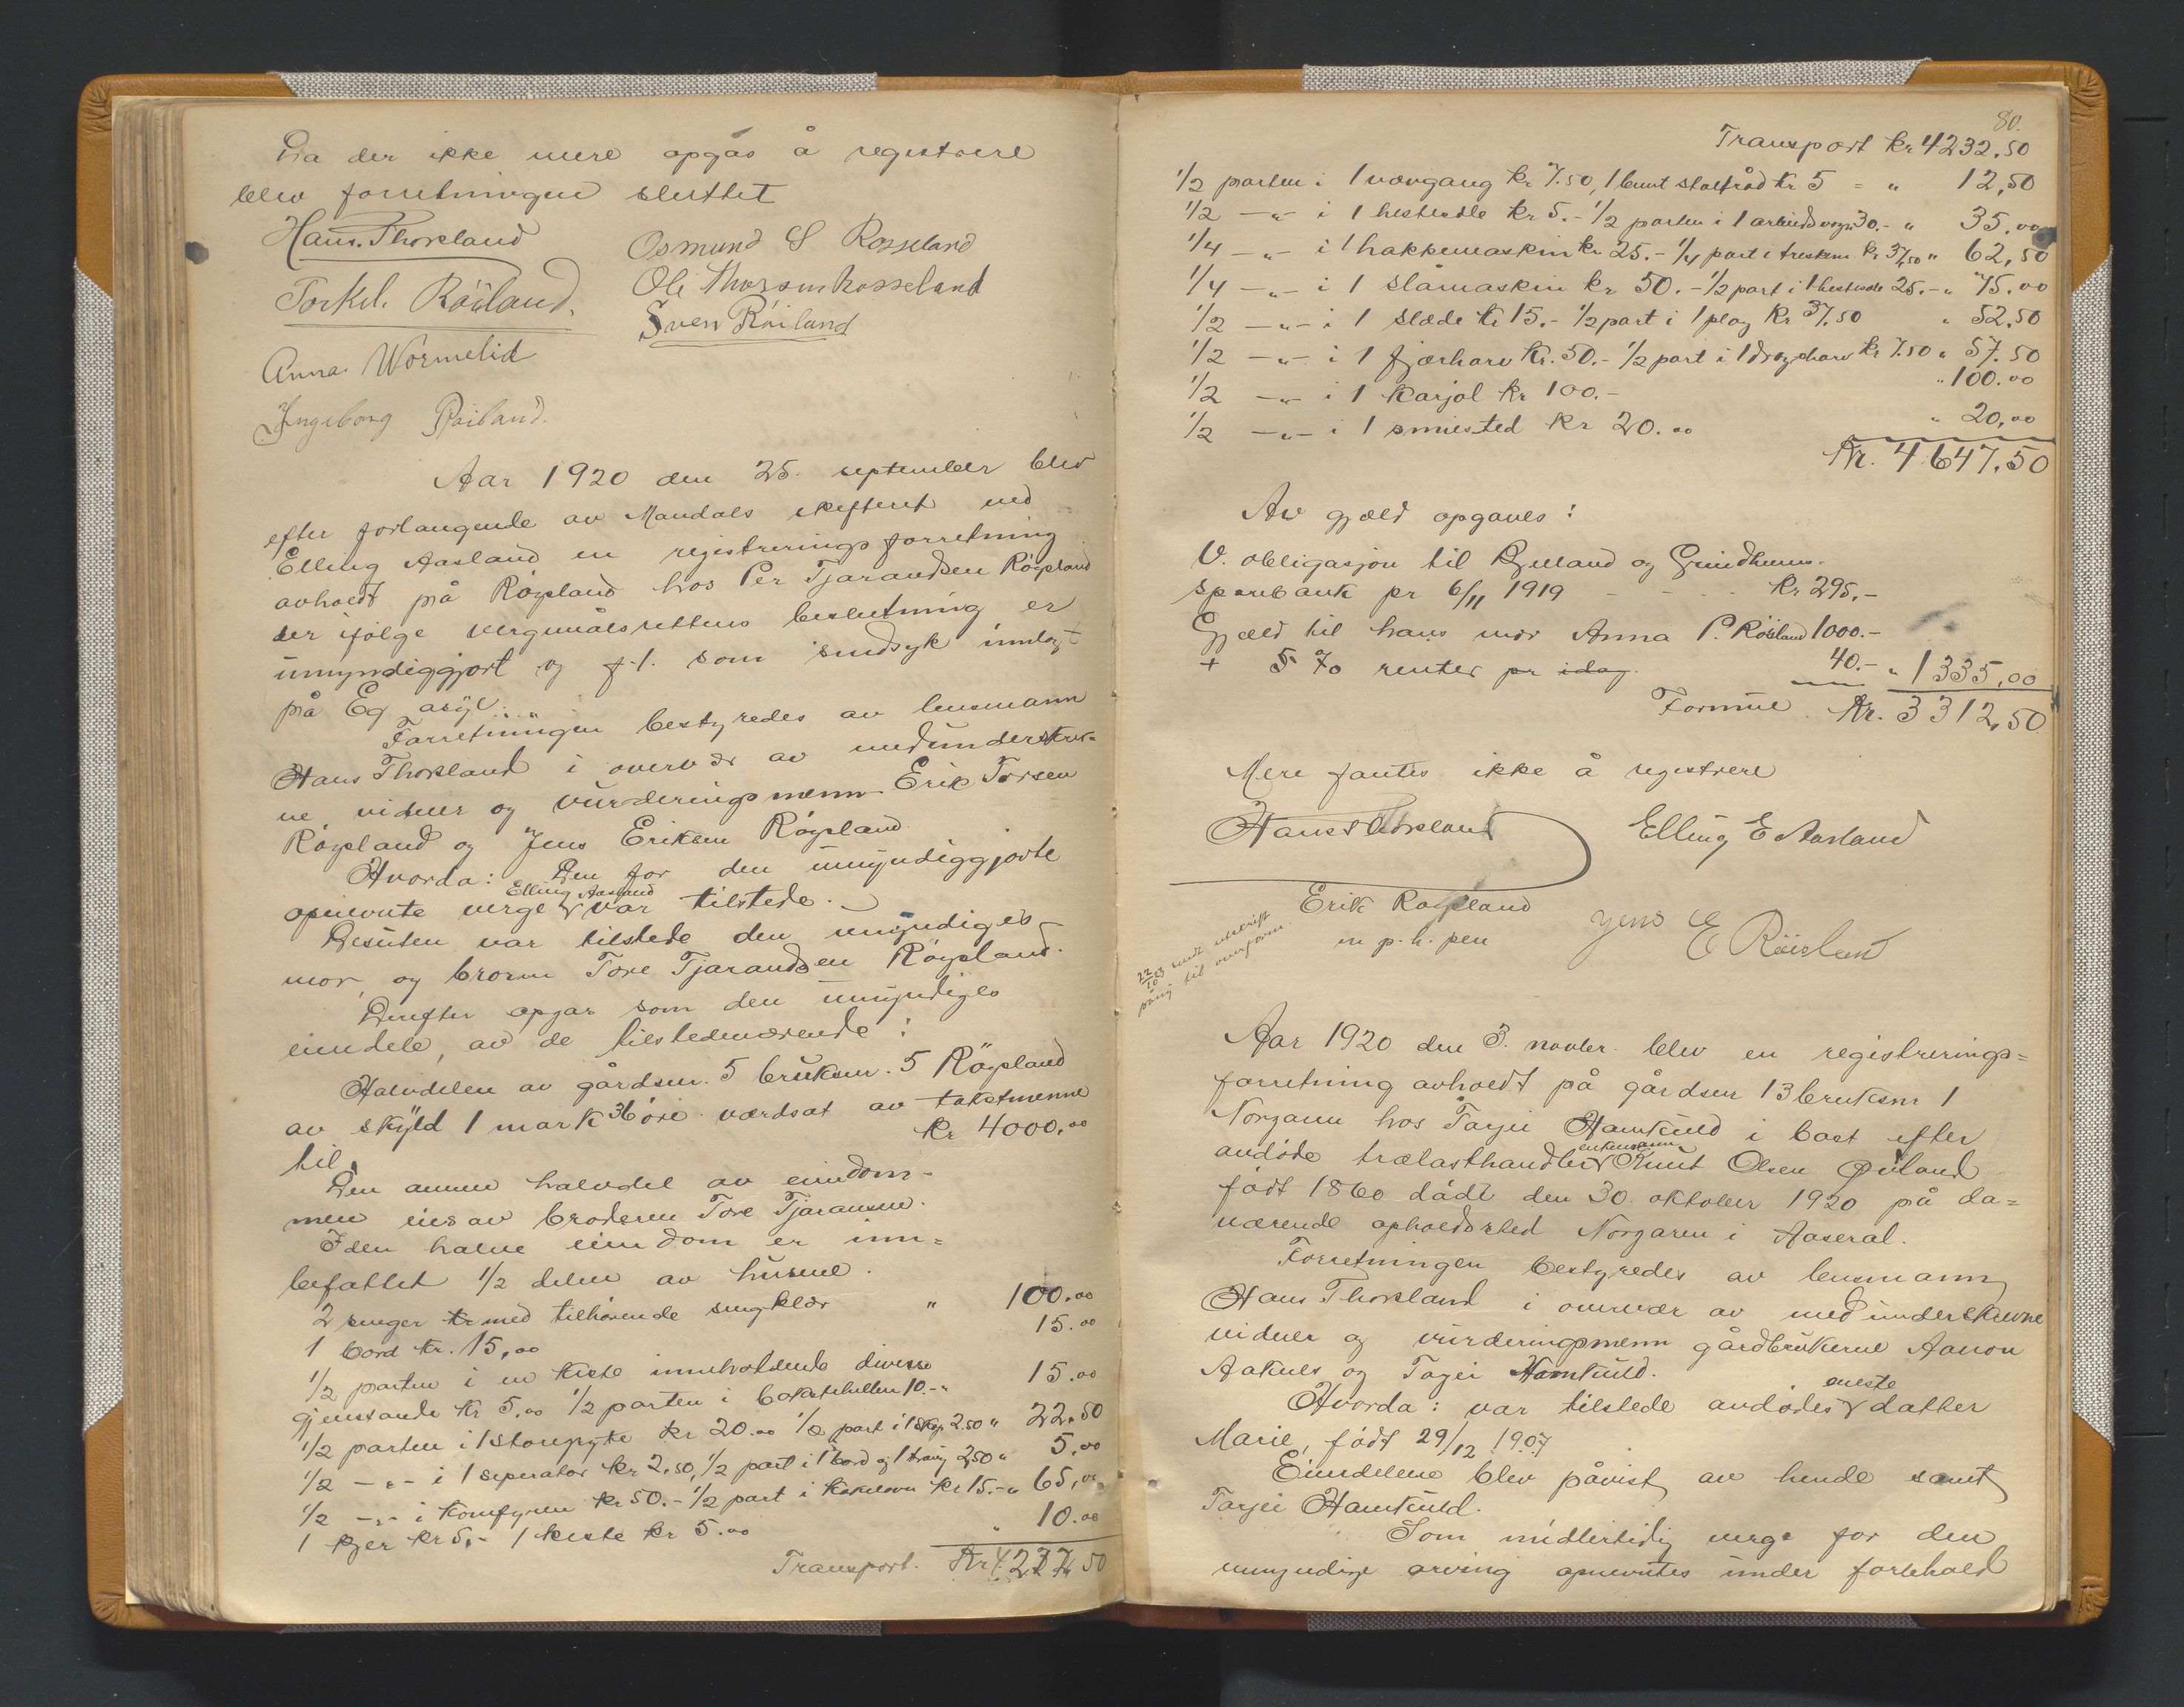 Da der ikke mere opgas å registrere
blev forretningen sluttet
Hans Thorsland
Osmund S Rosseland
Torkel Röiland.
Ole Thorsen Rosseland
Sven Röiland
Anna Wormelid
Ingeborg Röiland.
Aar 1920 den 25. september blev
efter forlangende av Mandals skifteret ved
Elling Aasland en registreringsforretning
avholdt på Röysland hos Per Tjarandsen Röysland
der ifölge vergemålsrettens beslutning er
umyndiggjort og f.t. som sindsyk innlagt
på Eg asyl.
Forretningen bestyredes av lensmann
Hans Thorsland i overvær av medunderskrev-
ne vidner og vurderingsmenn Erik Torsen
Röysland og Jens Eriksen Röysland.
Hvorda: Den for den umyndiggjorte
opnevnte verge Elling Aasland var tilstede.
Desuten var tilstede den umyndiges
mor, og broren Tore Tjarandsen Röysland.
Derefter opgas som den umyndiges
eiendele, av de tilstedeværende:
Halvdelen av gårdsnr. 5 bruksnr. 5 Röysland
av skyld 1 mark 36 öre værdsat av takstmenne
til kr 4000.00
Den annen halvdel av eiendom-
men eies av broderen Tore Tjaransen.
I den halve eiendom er inn-
befattet 1/2 delen av husene.
2 senger kr med tilhörende sengklær " 100.00
1 bord kr. 15,00 15.00
1/2 parten i en kiste inneholdende diverse
gjenstande kr 5.00 1/2 parten i bokstehellen 10.- " 15.00
1/2 parten i 1 storgryte kr 20.00 1/2 part i 1 skap 2.50 " 22.50
1/2 -"- i 1 seperator kr 2.50, 1/2 part i 1 bord og 1 traug 2,50 " 5.00
1/2 -"- i komfyren kr 50.- 1/2 part i kakelovn kr 15.- " 65,00
1 kjer kr 5,- 1 kiste kr 5.00 " 10.00
Transport. Kr 4232,50
80.
Transport kr 4232,50
1/2 parten i 1 vævgang kr 7.50, 1 bunt stoltråd kr 5 = " 12,50
1/2 -"- i 1 hestesdle kr 5.- 1/2 parten i 1 arbeidsvogn 30.- " 35.00
1/4 -"- i 1 hakkemaskin kr 25.- 1/4 part i treskem kr 37,50 " 62,50
1/4 -"- i 1 slåmaskin kr 50.- 1/2 part i 1 hestesele 25.- " 75.00
1/2 -"- i 1 slæde kr 15.- 1/2 part i 1 plog kr 37.50 " 52.50
1/2 -"- i 1 fjærharv kr. 50.- 1/2 part i 1 drogsharv kr 7.50 " 57.50
1/2 -"- i 1 karjol kr 100.- " 100.00
1/2 -"- i 1 smiested kr 20.00 " 20,00
Kr. 4647,50
Av gjæld opgaves:
V. obligasjon til Bjelland og Grindheim
sparebank pr 6/11 1919 - - - kr 295,-
Gjæld til hans mor Anna P. Röisland 1000.-
+ 5 % renter pr idag. 40.- " 1335,00
Formue Kr. 3312,50
Mere fantes ikke å registrere
Hans Thorsland
Elling E Aasland
Erik Røysland
m p. h. pen
Jens E Röisland
22/10 23 sendt utskrift
til overform
Aar 1920 den 3. novbr. blev en registrerings-
forretning avholdt på gårdsnr 13 bruksnr 1
Norgaren hos Tarjei Hamkuld i boet efter
avdöde trælasthandler enkemann Knut Olsen Øiland
födt 1860 död den 30. oktober 1920 på da-
værende opholdssted Norgaren i Aaseral.
Forretningen bestyredes av lensmann
Hans Thorsland i overvær av medunderskrevne
vidner og vurderingsmenn gårdbrukerne Aanon
og Tarjei Hamkuld.
Hvorda: var tilstede avdödes eneste datter
Marie, födt 29/12 1907
Eiendelene blev påvist av hende samt
Tarjei Hamkuld.
Som midlertidig verge for den
umyndige arving opnevntes under forbehold